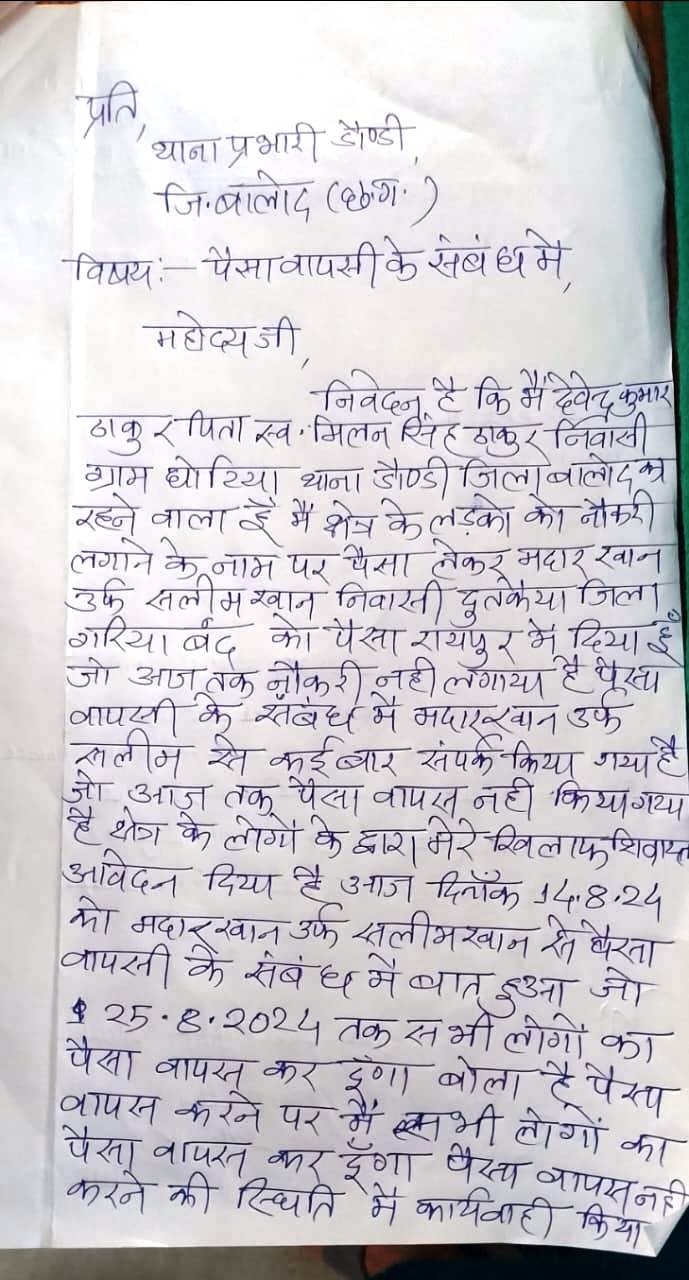 प्रति,
थाना प्रभारी डौण्डी,
जि. बालोद (छ.ग.)
विषय:- पैसा वापसी के संबंध में,
महोदय जी,
निवेदन है कि मैं देवेन्द्र कुमार
ठाकुर पिता स्व. मिलन सिंह ठाकुर निवासी
ग्राम घोटिया थाना डौण्डी जिला बालोद का
रहने वाला हूँ मैं क्षेत्र के लड़को को नौकरी
लगाने के नाम पर पैसा लेकर मदार खान
उर्फ सलीम खान निवासी दुतकैया जिला
गरियाबंद को पैसा रायपुर में दिया हूँ
जो आज तक नौकरी नही लगाया है पैसा
वापसी के संबंध में मदार खान उर्फ
सलीम से कई बार संपर्क किया गया है
जो आज तक पैसा वापस नही किया गया
है क्षेत्र के लोगों के द्वारा मेरे खिलाफ शिकायत
आवेदन दिया है आज दिनाँक 14.8.24
को मदार खान उर्फ सलीम खान से पैसा
वापसी के संबंध में बात हुआ जो
25.8.2024 तक सभी लोगों का
पैसा वापस कर दूँगा बोला है पैसा
वापस करने पर मैं सभी लोगों का
पैसा वापस कर दूँगा पैसा वापस नही
करने की स्थिति में कार्यवाही किया